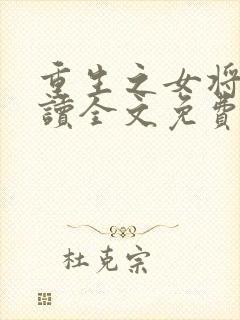 重生之女將
讀全文免費
杜克宗